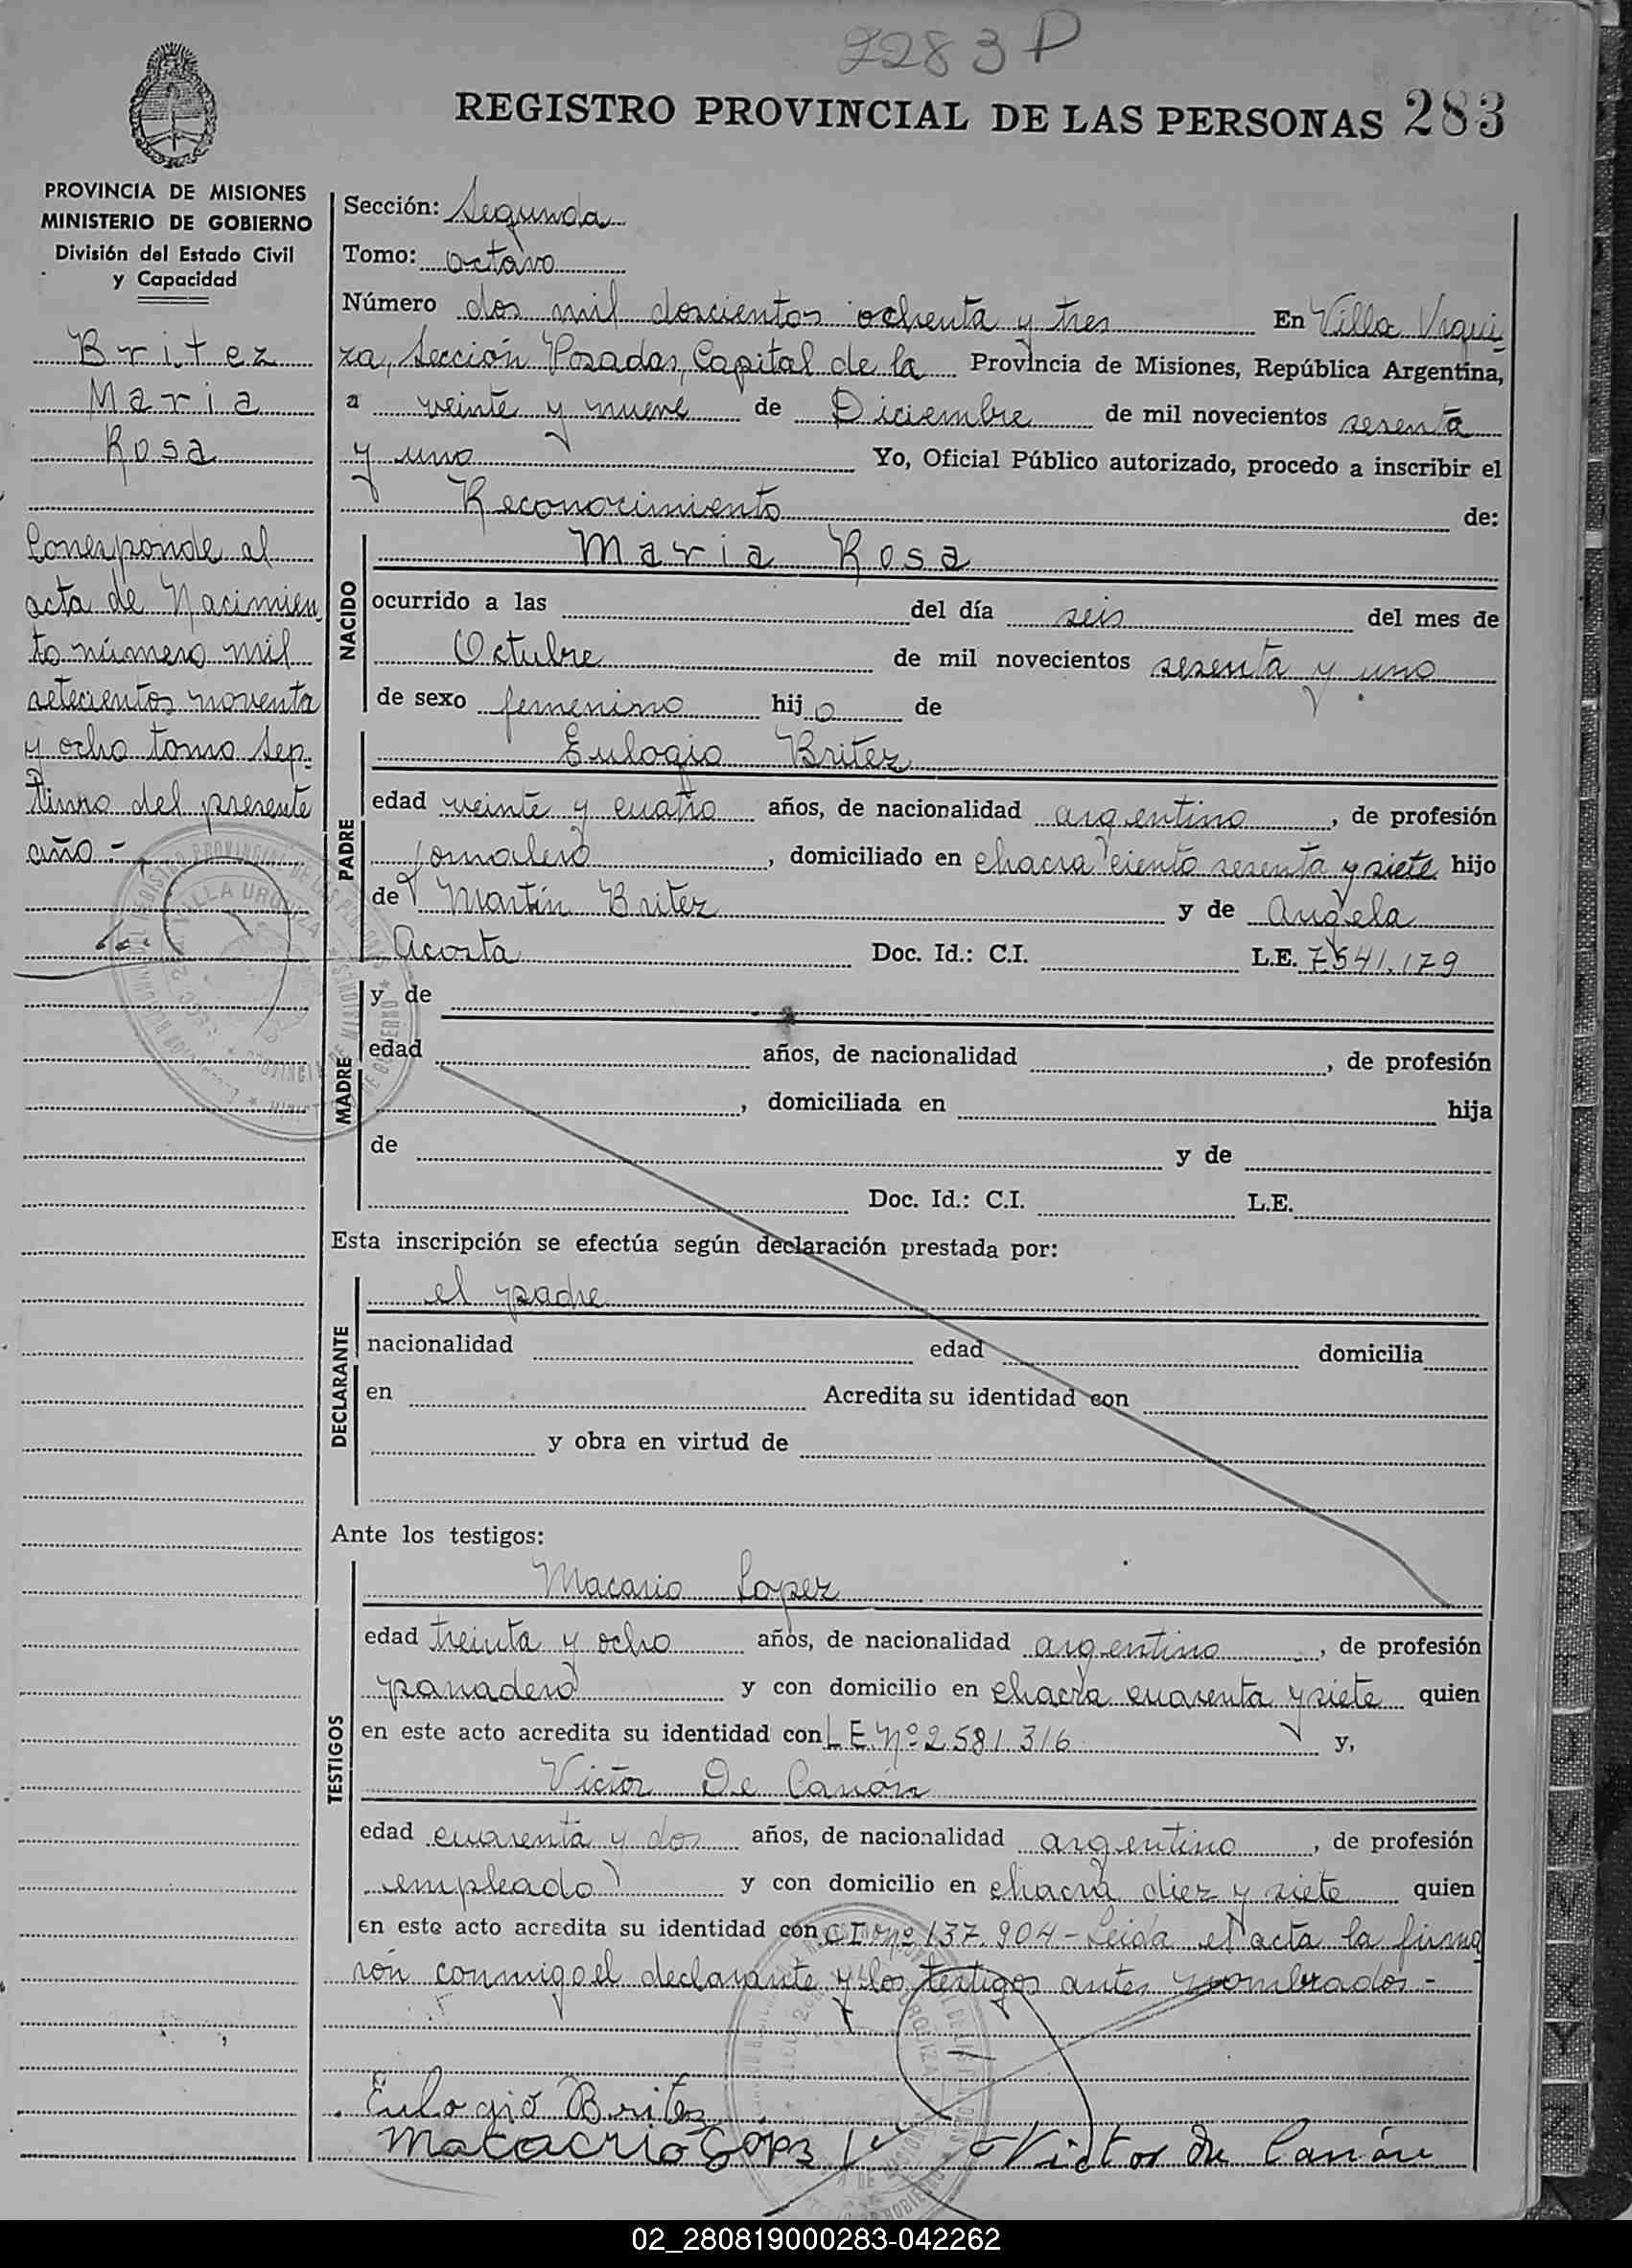 2283 D
REGISTRO PROVINCIAL DE LAS PERSONAS 283
PROVINCIA DE MISIONES
MINISTERIO DE GOBIERNO
División del Estado Civil
y Capacidad
Britez
Maria
Rosa
Corresponde al
acta de Nacimien
to número mil
setecientos noventa
y ocho tomo Sep-
timo del presente
año.-
Sección: Segunda
Tomo: octavo
Número dos mil doscientos ochenta y tres En Villa Urqui-
za, Sección Posadas, Capital de la Provincia de Misiones, República Argentina,
a veinte y nueve de Diciembre de mil novecientos sesenta
y uno Yo, Oficial Público autorizado, procedo a inscribir el
Reconocimiento de:
NACIDO
Maria Rosa
ocurrido a las del día seis del mes de
Octubre de mil novecientos sesenta y uno
de sexo femenino hijo de
PADRE
Eulogio Britez
edad veinte y cuatro años, de nacionalidad argentino, de profesión
jornalero, domiciliado en chacra ciento sesenta y siete hijo
de Martín Britez y de Angela
Acosta Doc. Id.: C.I. L.E. 7541.179
MADRE
y de
edad años, de nacionalidad , de profesión
, domiciliada en hija
de y de
Doc. Id.: C.I. L.E.
Esta inscripción se efectúa según declaración prestada por:
DECLARANTE
el padre
nacionalidad edad domicilia
en Acredita su identidad con
y obra en virtud de
Ante los testigos:
TESTIGOS
Macario Lopez
edad treinta y ocho años, de nacionalidad argentino, de profesión
panadero y con domicilio en chacra cuarenta y siete quien
en este acto acredita su identidad con L E. Nº 2.581.316 y,
Victor De Canón
edad cuarenta y dos años, de nacionalidad argentino, de profesión
empleado y con domicilio en chacra diez y siete quien
en este acto acredita su identidad con C I nº 137.904 - Leida el acta la firma
rón conmigo el declarante y los testigos antes nombrados.-
Eulogio Britez
Victor De Canón
02_280819000283-042262